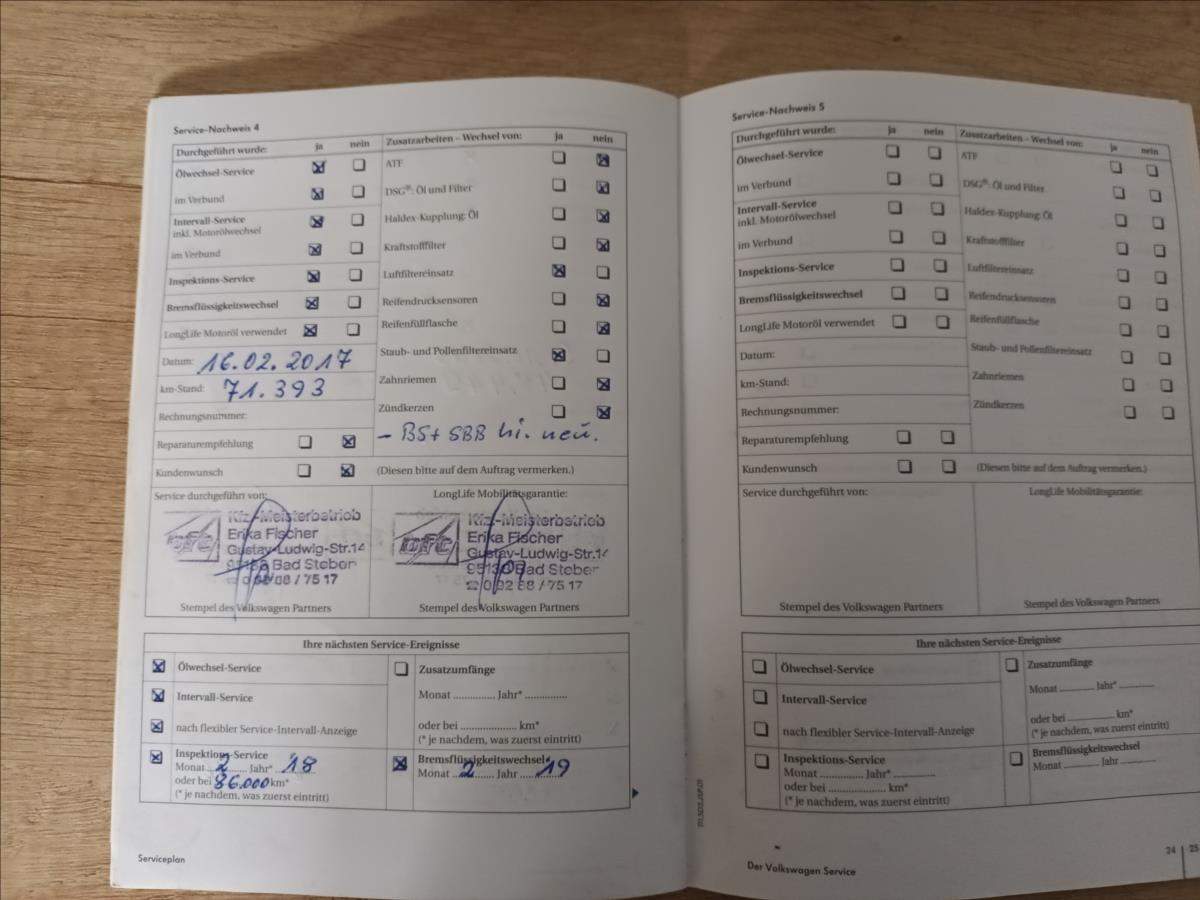 Service-Nachweis 4
Durchgeführt wurde: ja nein
Ölwechsel-Service
im Verbund
Intervall-Service
inkl. Motorölwechsel
im Verbund
Inspektions-Service
Bremsflüssigkeitswechsel
LongLife Motoröl verwendet
Datum: 16.02.2017
km-Stand: 71.393
Rechnungsnummer:
Reparaturempfehlung
Kundenwunsch
Zusatzarbeiten – Wechsel von: ja nein
ATF
DSG®: Öl und Filter
Haldex-Kupplung: Öl
Kraftstofffilter
Luftfiltereinsatz
Reifendrucksensoren
Reifenfüllflasche
Staub- und Pollenfiltereinsatz
Zahnriemen
Zündkerzen
– BS+ SBB hi. neu.
(Diesen bitte auf dem Auftrag vermerken.)
Service durchgeführt von:
Kfz-Meisterbetrieb
Erika Fischer
Gustav-Ludwig-Str.14
Bad Steben
/ 75 17
Stempel des Volkswagen Partners
LongLife Mobilitätsgarantie:
Kfz-Meisterbetrieb
Erika Fischer
Gustav-Ludwig-Str.14
Bad Steben
0 92 88 / 75 17
Stempel des Volkswagen Partners
Ihre nächsten Service-Ereignisse
Ölwechsel-Service
Intervall-Service
nach flexibler Service-Intervall-Anzeige
Inspektions-Service
Monat 2 Jahr* 18
oder bei 86.000 km*
(* je nachdem, was zuerst eintritt)
Zusatzumfänge
Monat .............. Jahr* ..............
oder bei .................... km*
(* je nachdem, was zuerst eintritt)
Bremsflüssigkeitswechsel
Monat 2 Jahr 19
Serviceplan
Service-Nachweis 5
Durchgeführt wurde: ja nein
Ölwechsel-Service
im Verbund
Intervall-Service
inkl. Motorölwechsel
im Verbund
Inspektions-Service
Bremsflüssigkeitswechsel
LongLife Motoröl verwendet
Datum:
km-Stand:
Rechnungsnummer:
Reparaturempfehlung
Kundenwunsch
Zusatzarbeiten – Wechsel von: ja nein
ATF
DSG®: Öl und Filter
Haldex-Kupplung: Öl
Kraftstofffilter
Luftfiltereinsatz
Reifendrucksensoren
Reifenfüllflasche
Staub- und Pollenfiltereinsatz
Zahnriemen
Zündkerzen
(Diesen bitte auf dem Auftrag vermerken.)
Service durchgeführt von:
Stempel des Volkswagen Partners
LongLife Mobilitätsgarantie:
Stempel des Volkswagen Partners
Ihre nächsten Service-Ereignisse
Ölwechsel-Service
Intervall-Service
nach flexibler Service-Intervall-Anzeige
Inspektions-Service
Monat .............. Jahr* ..............
oder bei .................... km*
(* je nachdem, was zuerst eintritt)
Zusatzumfänge
Monat ............ Jahr* ............
oder bei .................... km*
(* je nachdem, was zuerst eintritt)
Bremsflüssigkeitswechsel
Monat ............ Jahr ............
Der Volkswagen Service
24 | 25